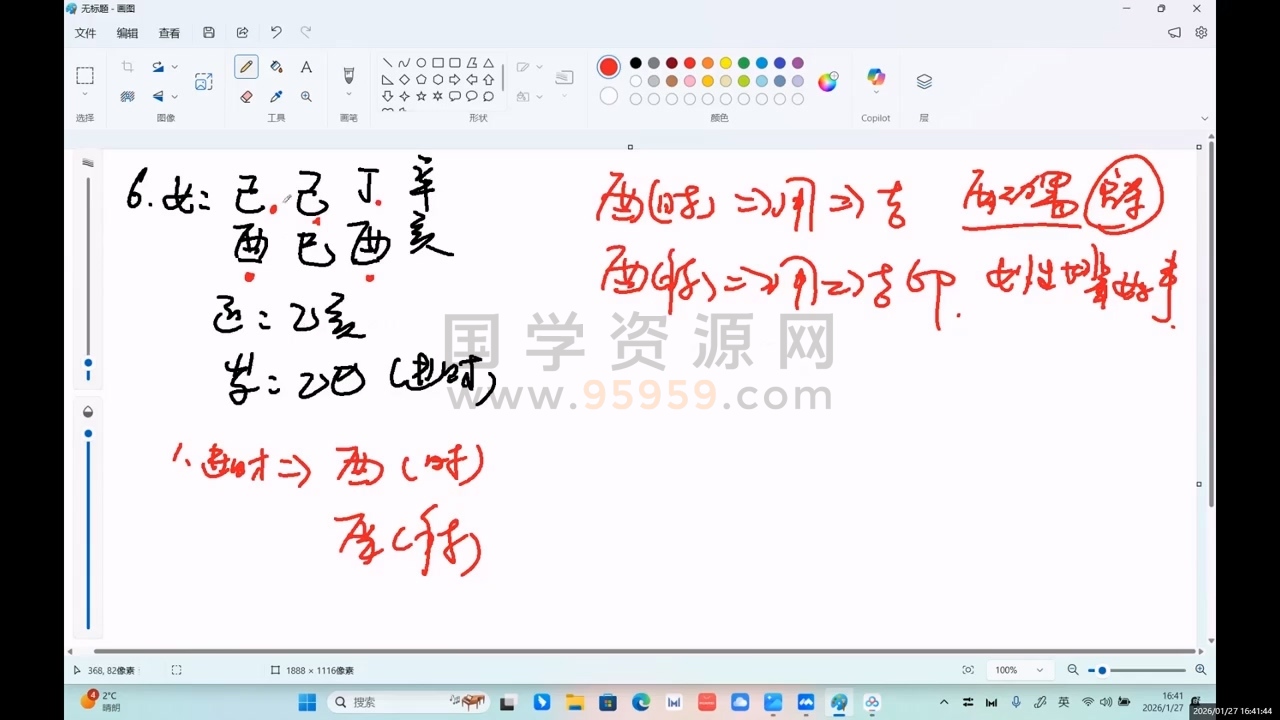 无标题 - 画图
文件 编辑 查看
选择 图像 工具 画笔 形状 颜色 Copilot 层
6.女: 己 己 丁 辛
酉 巳 酉 亥
运: 乙亥
岁: 乙巳 (进财)
酉(时) => 用 => 吉
酉(年) => 用 => 吉
1. 进财 => 酉(时)
酉(年)
国学资源网
www.95959.com
368, 82像素 1888 × 1116像素 100%
4 2°C 晴朗 搜索 英 16:41 2026/1/27
2026/01/27 16:41:44